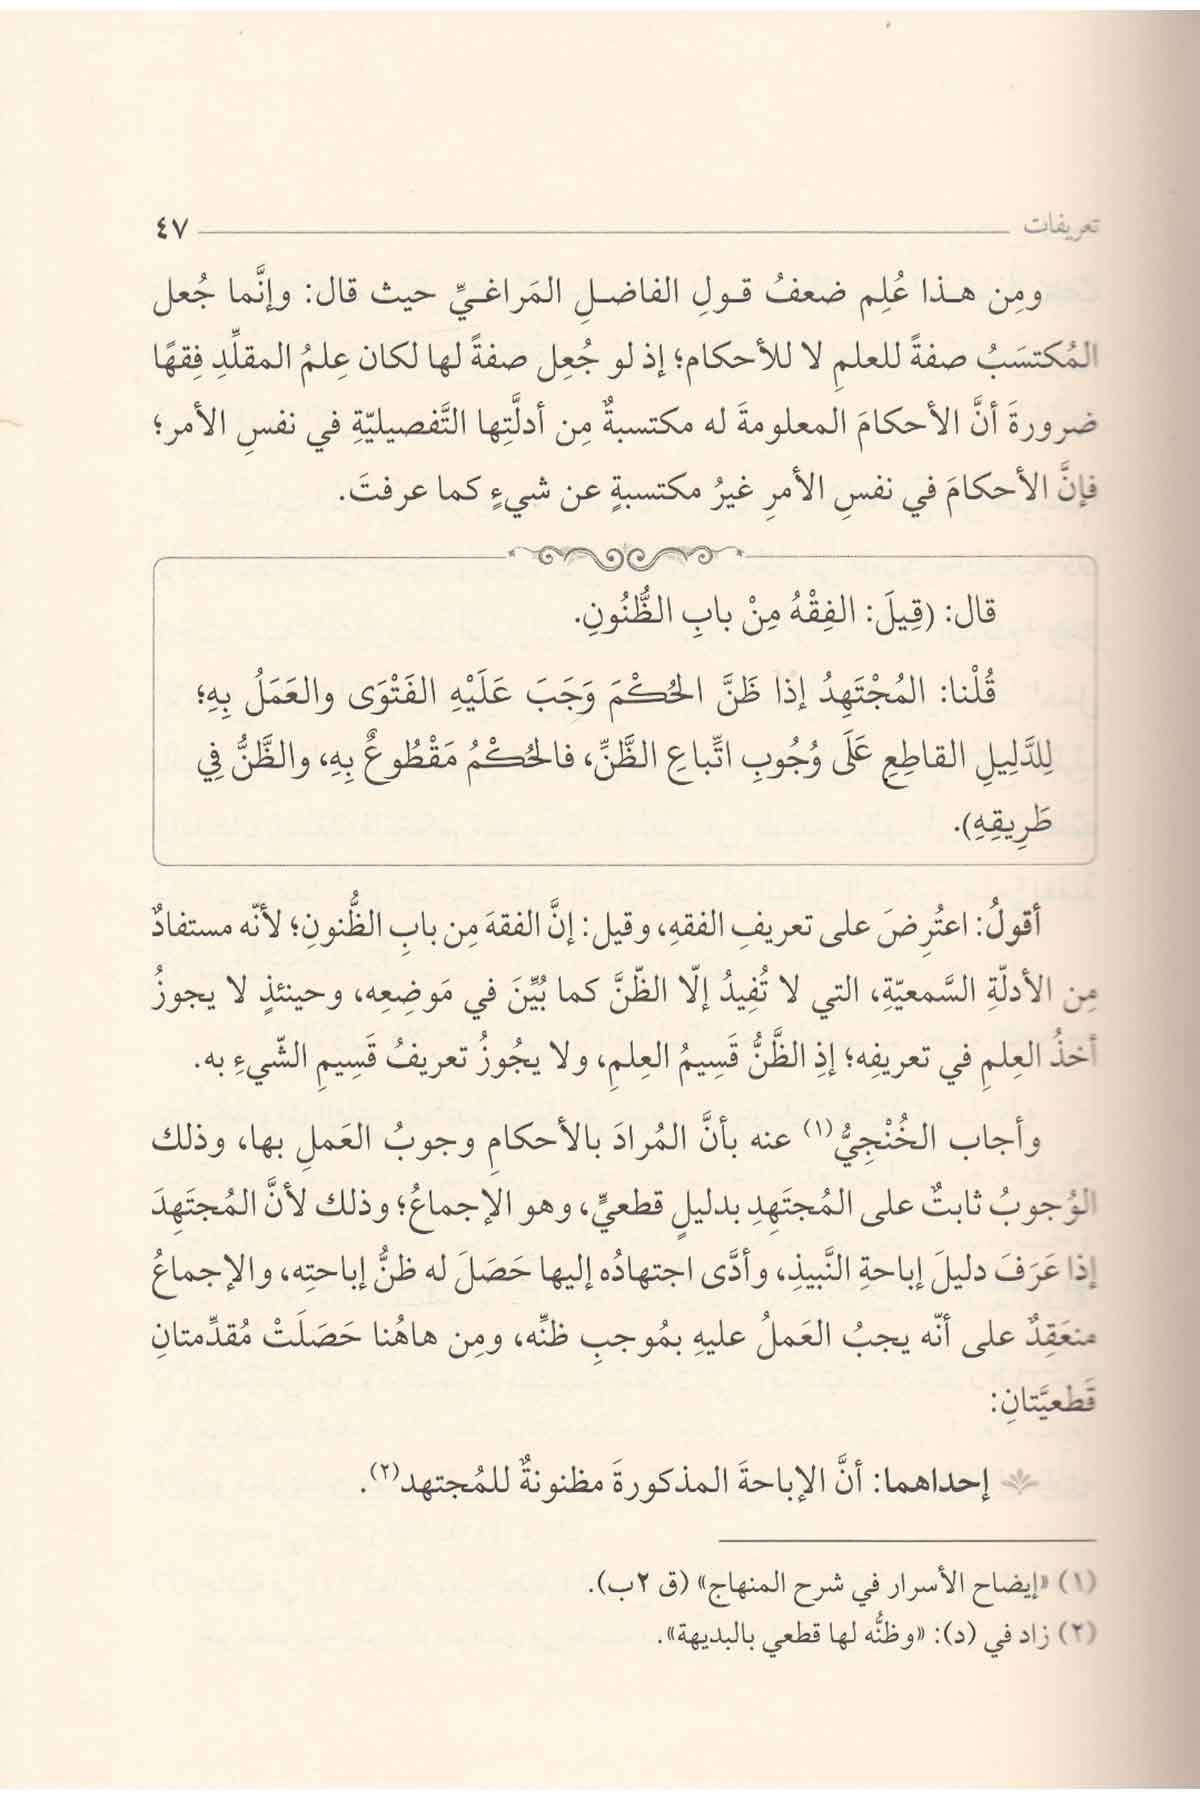 تعريفات ٤٧
ومِن هذا عُلِم ضعفُ قولِ الفاضلِ المَراغيِّ حيث قال: وإنَّما جُعل
المُكتسَبُ صفةً للعلمِ لا للأحكام؛ إذ لو جُعِل صفة لها لكان عِلمُ المقلِّدِ فِقهًا
ضرورةَ أنَّ الأحكامَ المعلومةَ له مكتسبةٌ مِن أدلَّتِها التَّفصيليّةِ في نفسِ الأمر؛
فإنَّ الأحكامَ في نفسِ الأمرِ غيرُ مكتسبةٍ عن شيءٍ كما عرفتَ.
قال: (قِيلَ: الفِقْهُ مِنْ بابِ الظُّنُونِ.
قُلْنا: المُجْتَهِدُ إذا ظَنَّ الحُكْمَ وَجَبَ عَلَيْهِ الفَتْوَى والعَمَلُ بِهِ؛
لِلدَّلِيلِ القاطِعِ عَلَى وُجُوبِ اتِّباعِ الظَّنِّ، فالحُكْمُ مَقْطُوعٌ بِهِ، والظَّنُّ فِي
طَرِيقِهِ).
أقولُ: اعتُرِضَ على تعريفِ الفقهِ، وقيل: إنَّ الفقهَ مِن بابِ الظُّنونِ؛ لأنّه مستفادٌ
مِن الأدلّةِ السَّمعيّةِ، التي لا تُفِيدُ إلّا الظّنَّ كما بُيِّنَ في مَوضِعِه، وحينئذٍ لا يجوزُ
أخذُ العِلمِ في تعريفِه؛ إذِ الظَّنُّ قَسِيمُ العِلمِ، ولا يجُوزُ تعريفُ قَسِيمِ الشّيءِ به.
وأجاب الخُنْجِيُّ(١) عنه بأنَّ المُرادَ بالأحكامِ وجوبُ العَملِ بها، وذلك
الوُجوبُ ثابتٌ على المُجتَهِدِ بدليلٍ قطعيٍّ، وهو الإجماعُ؛ وذلك لأنَّ المُجتَهِدَ
إذا عَرَفَ دليلَ إباحةِ النَّبيذِ، وأدَّى اجتهادُه إليها حَصَلَ له ظنُّ إباحتِه، والإجماعُ
منعَقِدٌ على أنّه يجبُ العَملُ عليهِ بمُوجبِ ظنِّه، ومِن هاهُنا حَصَلَتْ مُقدِّمتانِ
قَطعيَّتانِ:
إحداهما: أنَّ الإباحةَ المذكورةَ مظنونةٌ للمُجتهد(٢).
(١) «إيضاح الأسرار في شرح المنهاج» (ق ٢ب).
(٢) زاد في (د): «وظنُّه لها قطعي بالبديهة».